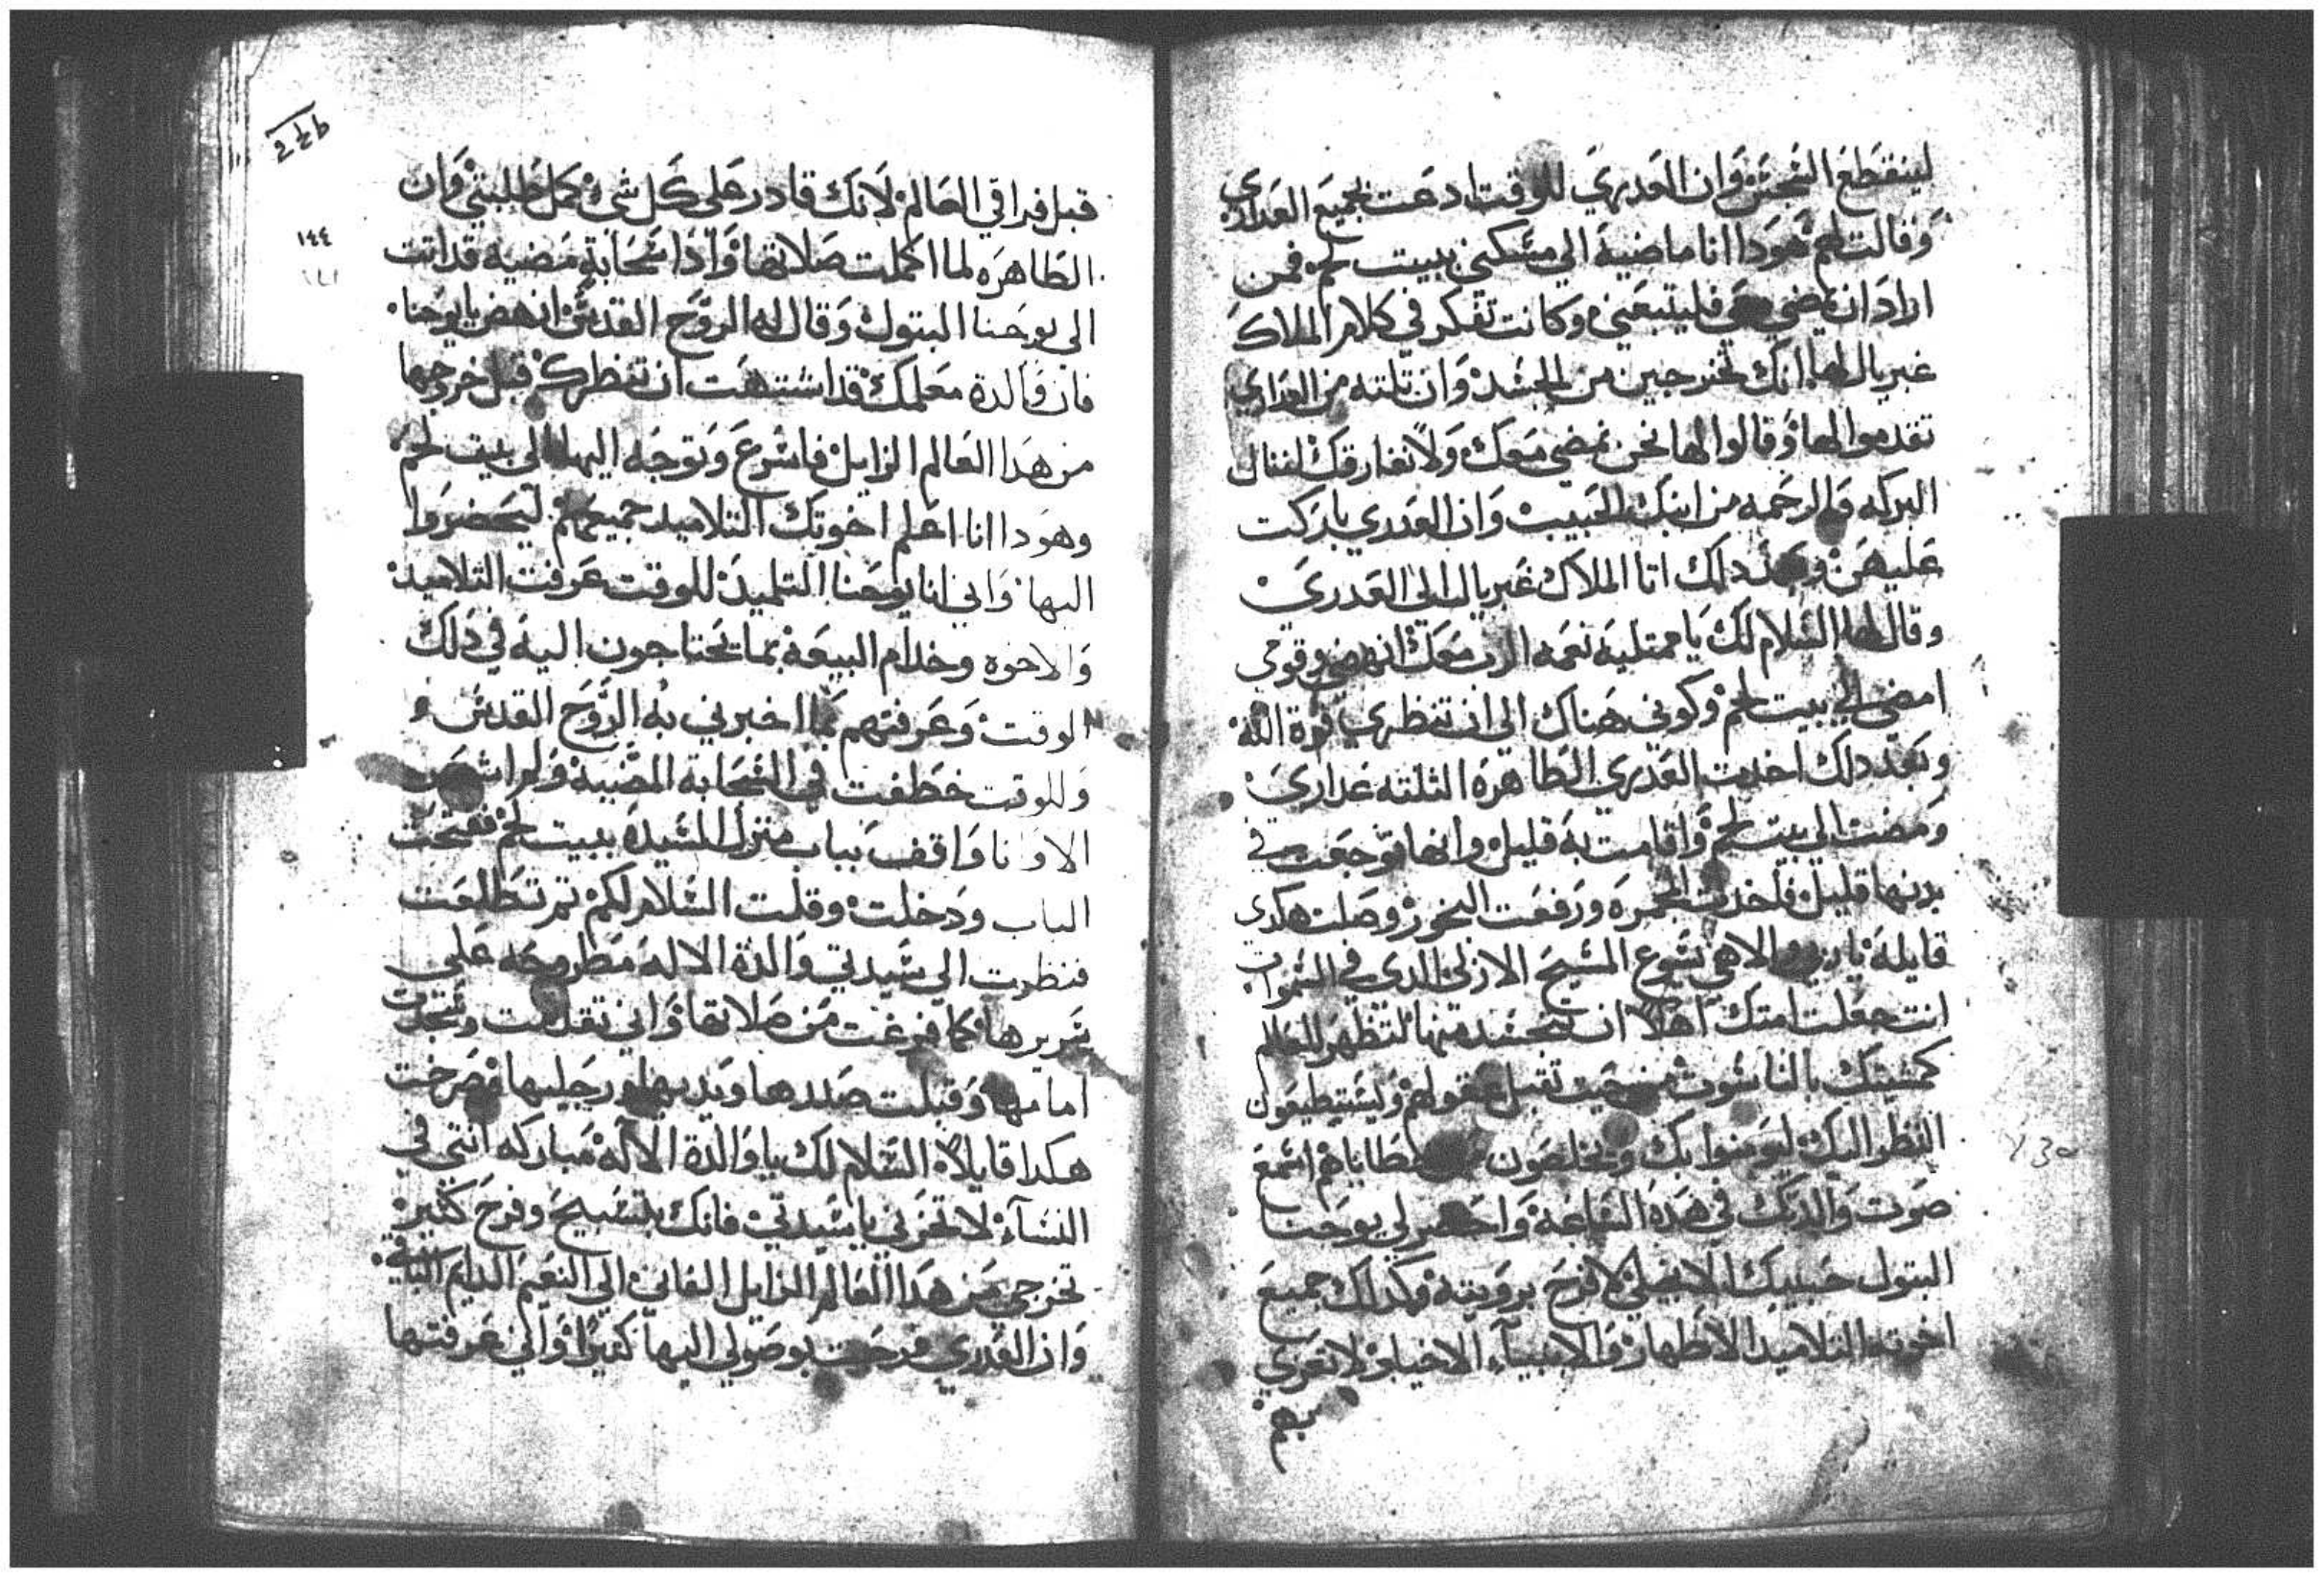 لينقطع النجس وان العدري للوقت ادعت بجميع العداري
وقالت لهم هودا انا ماضيه الي مسكني ببيت لحم فمن
اراد ان يمضي معي فليتبعني وكانت تفكر في كلام الملاك
غبريال لها انك تخرجين من الجسد وان تلته من العداري
تقدموا لها وقالوا لها نحن نمضي معك ولا نفارقك لننال
البركه والرحمه من ابنك الحبيب وان العدري باركت
عليهن وبعد دلك اتا الملاك غبريال الي العدري
وقال لها السلام لك يا ممتليه نعمه الرب معك انهضي وقومي
امضي الي بيت لحم وكوني هناك الي ان تنظري قوة الله
وبعد دلك اخدت العدري الطاهره الثلته عداري
ومضت الي بيت لحم واقامت به قليل وانها توجعت في
بدنها قليل فاخدت المجمره ورفعت البخور وصلت هكدي
قايله يا ربي والاهي يسوع المسيح الازلي الدي في السموات
انت جعلت امتك اهلا ان تتجسد منها لتظهر للعالم
كمشيتك بالناسوت من حيت تقبل عقولهم ويستيطيعون
النظر اليك ليومنوا بك ويخلصون من خطاياهم اسمع
صوت والدتك في هده الساعه واحضر لي يوحنا
البتول حبيبك الانجيلي لافرح برويته وكدلك جميع
اخوته التلاميد الاطهار والانبياء الاخيار لاتعزي
بهم
2حط
١٤٤
قبل فراقي العالم لانك قادر علي كل شي كمل طلبتي وان
الطاهره لما اكملت صلاتها وادا سحابة مضيه قد اتت
الي يوحنا البتول وقال له الروح القدس انهض يا يوحنا
فان والدة معلمك قد اشتهت ان تنظرك قبل خروجها
من هدا العالم الزايل فاسرع وتوجه اليها الي بيت لحم
وهودا انا اعلم اخوتك التلاميد جميعهم ليحضروا
اليها واني انا يوحنا التلميد للوقت عرفت التلاميد
والاخوه وخدام البيعه بما يحتاجون اليه في دلك
الوقت وعرفتهم بما اخبرني به الروح القدس
وللوقت خطفت في السحابه المضييه ولم اشعر
الا وانا واقف بباب منزل السيده ببيت لحم ففتحت
الباب ودخلت وقلت السلام لكم تم تطلعت
فنظرت الي سيدتي والدة الاله مطروحه علي
سريرها كما فرغت من صلاتها واني تقدمت وسجدت
امامها وقبلت صدرها ويديها ورجليها وصرخت
هكدا قايلا السلام لك يا والدة الاله مباركه انتي في
النساء لا تحزني يا سيدتي فانك بتسبيح وفرح كثير
تخرجي من هدا العالم الزايل الفاني الي النعيم الدايم الباقي
وان العدري فرحت بوصولي اليها كثيرا واني عرفتها